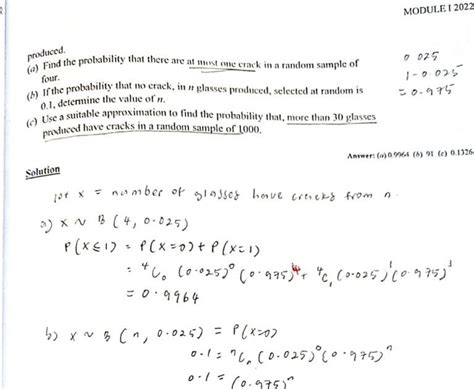 MODULE I 2022
produced.
(a) Find the probability that there are at most one crack in a random sample of
four.
(b) If the probability that no crack, in n glasses produced, selected at random is
0.1, determine the value of n.
(c) Use a suitable approximation to find the probability that, more than 30 glasses
produced have cracks in a random sample of 1000.
0.025
1-0.025
=0.975
Answer: (a) 0.9964 (b) 91 (c) 0.1326
Solution
let x = number of glasses have cracks from n.
a) X ~ B (4, 0.025)
P(X≤1) = P(X=0) + P(X=1)
= ⁴C₀ (0.025)⁰ (0.975)⁴ + ⁴C₁ (0.025)¹ (0.975)³
= 0.9964
b) X ~ B (n, 0.025) = P(X=0)
0.1 = ⁿC₀ (0.025)⁰ (0.975)ⁿ
0.1 = (0.975)ⁿ